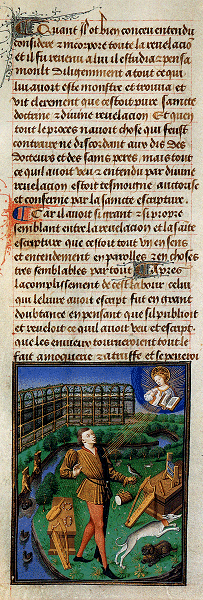 Quant Il ot bien conceu entendu
considere z incorpore toute la revelacio
et il fu revenu a lui il estudia z pensa
moult diligemment a tout ce qui
lui avoit este monstre et trouva et
vit clerement que cestoit pure saincte
doctrine z divine revelacion Et que
tout le proces navoit chose qui feust
contraire ne discordant aux dis des
docteurs et des sains peres mais tout
ce quil avoit veu z entendu par divine
revelacion estoit tesmoigne auctorise
et conferme par la saincte escripture.
Car il avoit si grant z si propre
semblance entre la revelacion et la saite
escripture que ce stoit tout vn en sens
et entendement en paroles z en choses
tres semblables par tout Apres
lacomplissement de cest labour celui
qui le livre avoit escript fu en grant
doubtance en pensant que sil publioit
et reveloit ce quil avoit veu et escript
que les envieux tourneroient tout le
fait a moquerie z a truffe et se penero